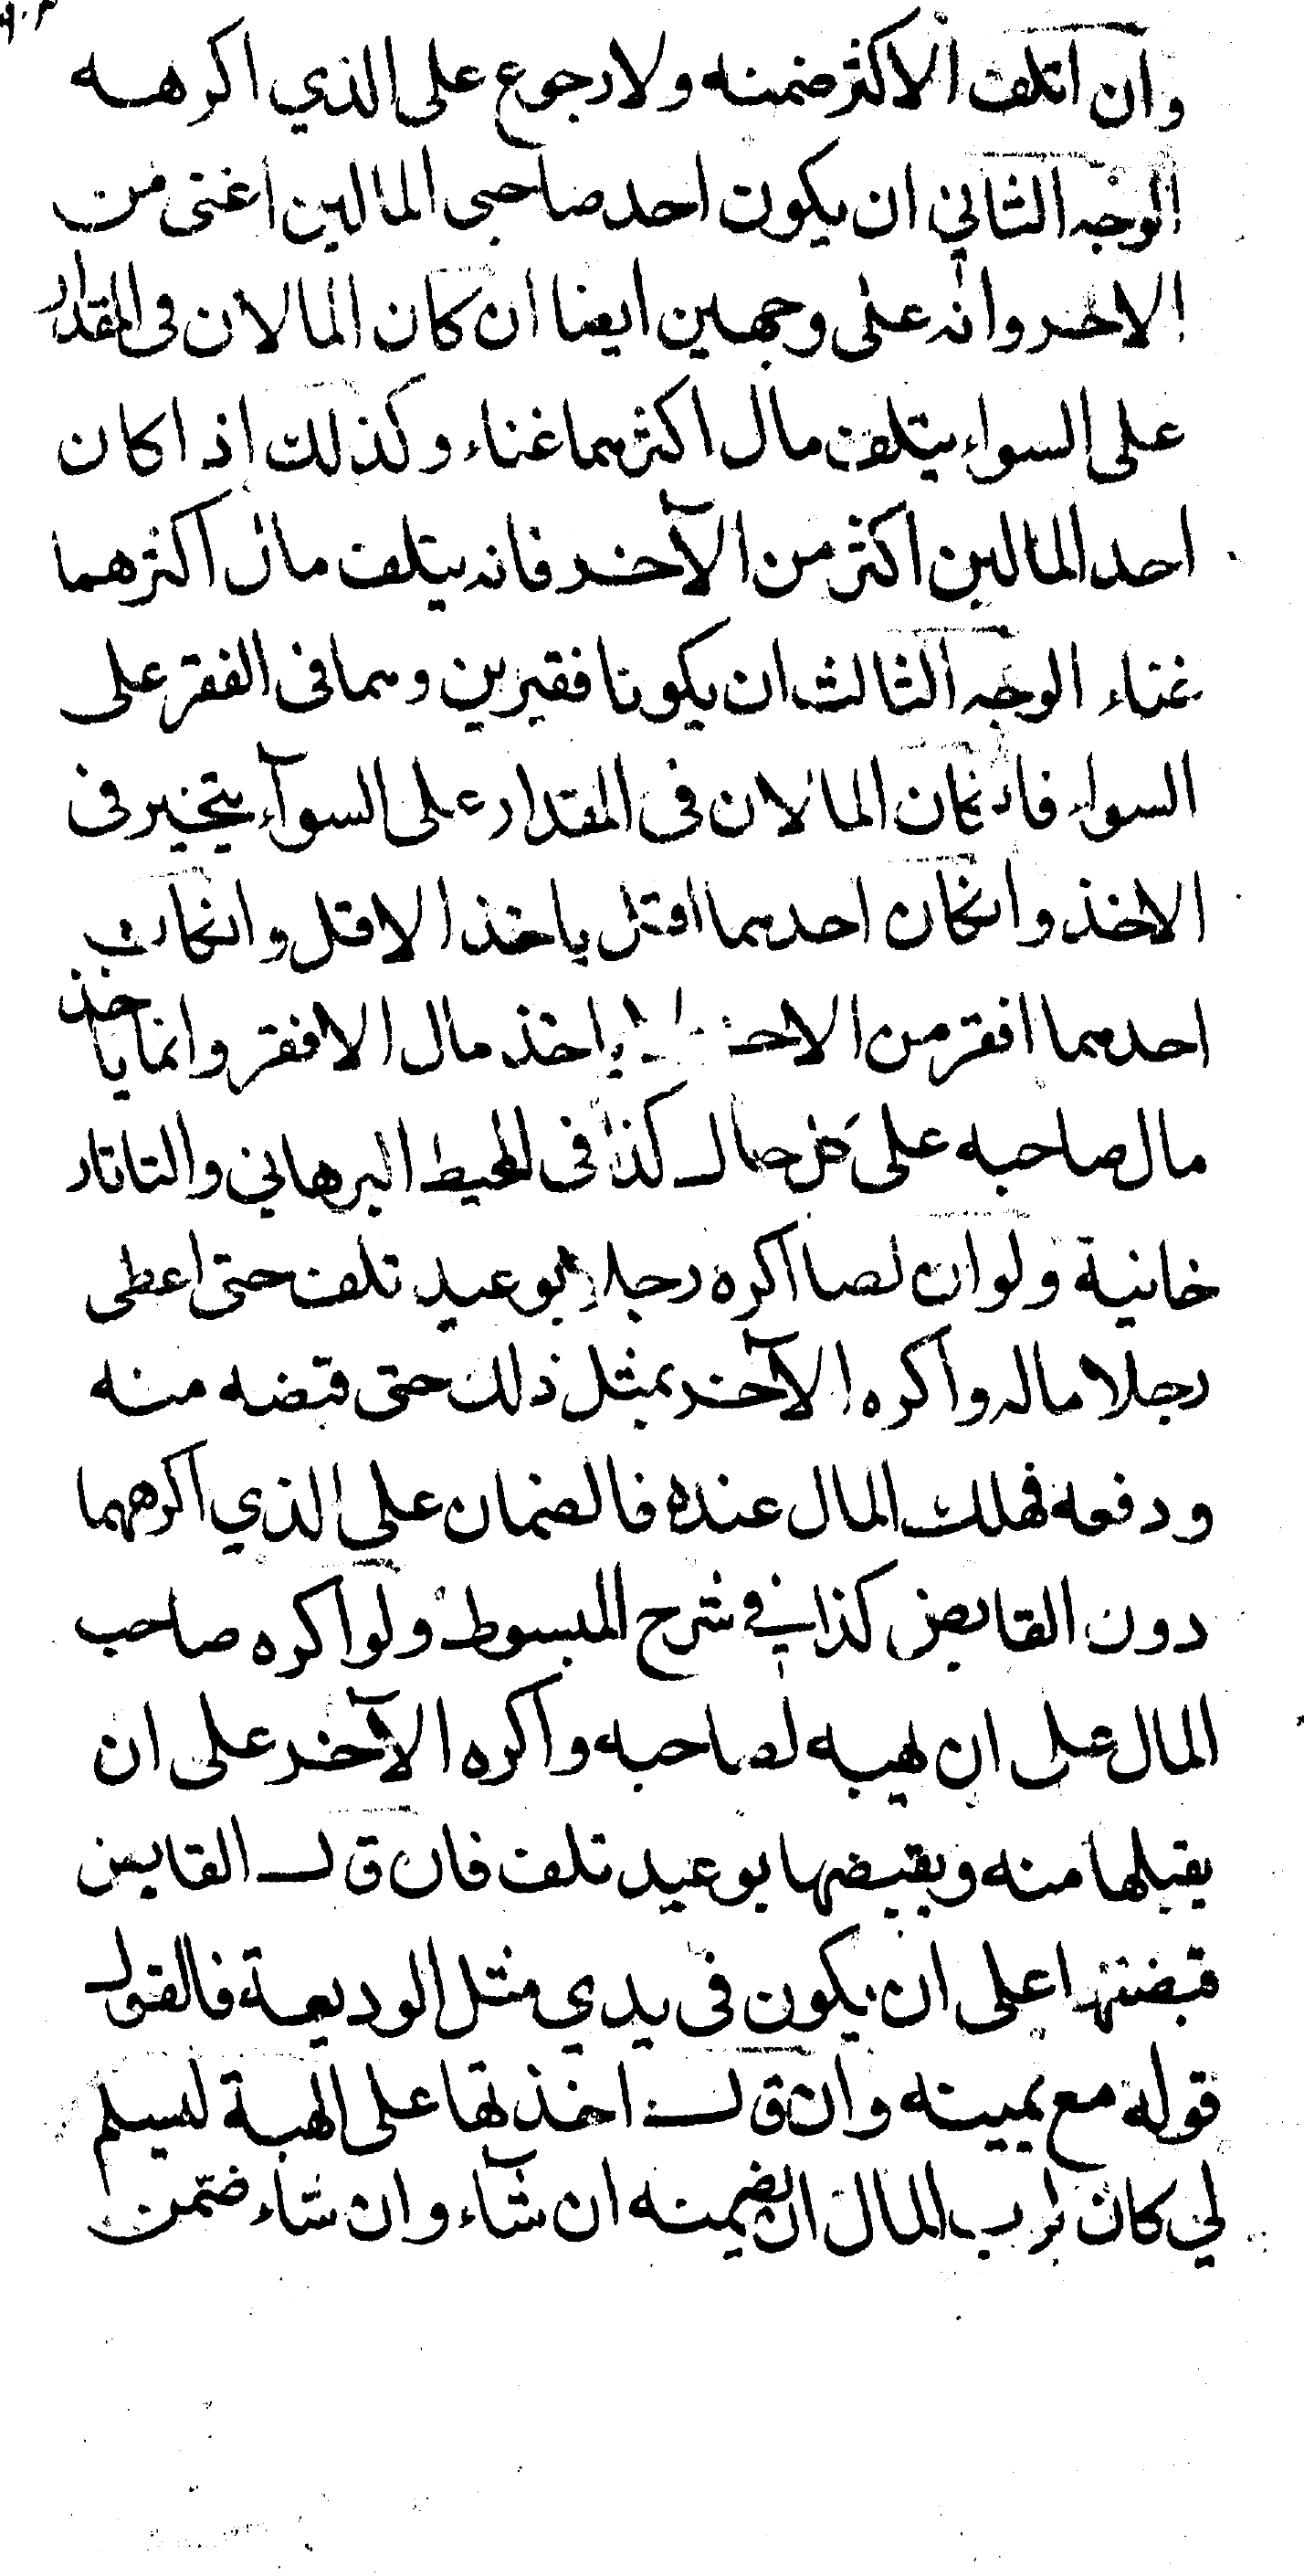 وان اتلف الاكثر ضمنه ولا رجوع على الذي اكرهه
الوجه الثاني ان يكون احد صاحبى المالين اغنى من
الاخر وانه على وجهين ايضا ان كان المالان فى المقدار
على السواء يتلف مال اكثرهما غناء وكذلك اذا كان
احد المالين اكثر من الآخر فانه يتلف مال اكثرهما
غناء الوجه الثالث ان يكونا فقيرين وهما فى الفقر على
السواء فان كان المالان فى المقدار على السوآء يتخير فى
الاخذ وانكان احدهما اقل ياخذ الاقل وانكان
احدهما افقر من الاخر ياخذ مال الافقر وانما ياخذ
مال صاحبه على كل حال كذا فى المحيط البرهاني والتاتار
خانية ولو ان لصا اكره رجلا بوعيد تلف حتى اعطى
رجلا ماله واكره الآخر بمثل ذلك حتى قبضه منه
ودفعه فهلك المال عنده فالضمان على الذي اكرههما
دون القابض كذا في شرح المبسوط ولو اكره صاحب
المال على ان يهبه لصاحبه واكره الآخر على ان
يقبلها منه ويقبضها بوعيد تلف فان قال القابض
قبضتها على ان يكون فى يدي مثل الوديعة فالقول
قوله مع يمينه وان قال اخذتها على الهبة ليسلم
لي كان لرب المال ان يضمنه ان شآء وان شاء ضمّن